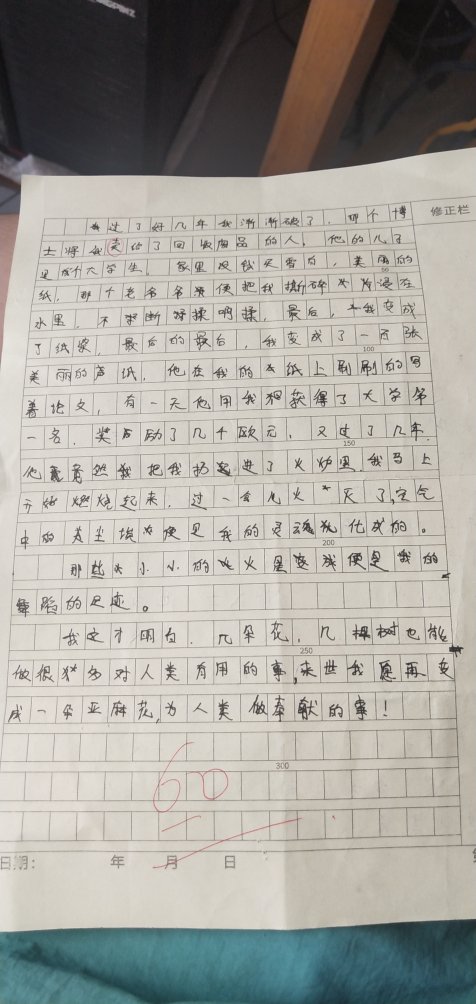 修正栏
过了好几年我渐渐破了，那个博
士将我卖给了回收废品的人，他的儿子
是成个大学生。家里没钱买雪白，美丽的
纸，那个老爷爷便把我撕碎浸在
水里，不断揉啊揉，最后，我变成
了纸浆，最后的最后，我变成了一百张
100
美丽的白纸，他在我的纸上刷刷的写
着论文，有一天他用我获得了大学第
一名，奖励了几千欧元，又过了几年，
150
他竟然把我扔进了火炉里，我马上
开始燃烧起来，过一会儿火灭了，空气
中的尘埃便是我的灵魂化成的。
200
那些小小的火星便是我的
舞蹈的足迹。
我这才明白，几朵花，几棵树也能
250
做很多对人类有用的事，来世我愿再变
成一朵亚麻花，为人类做奉献的事！
300
60
日期： 年 月 日